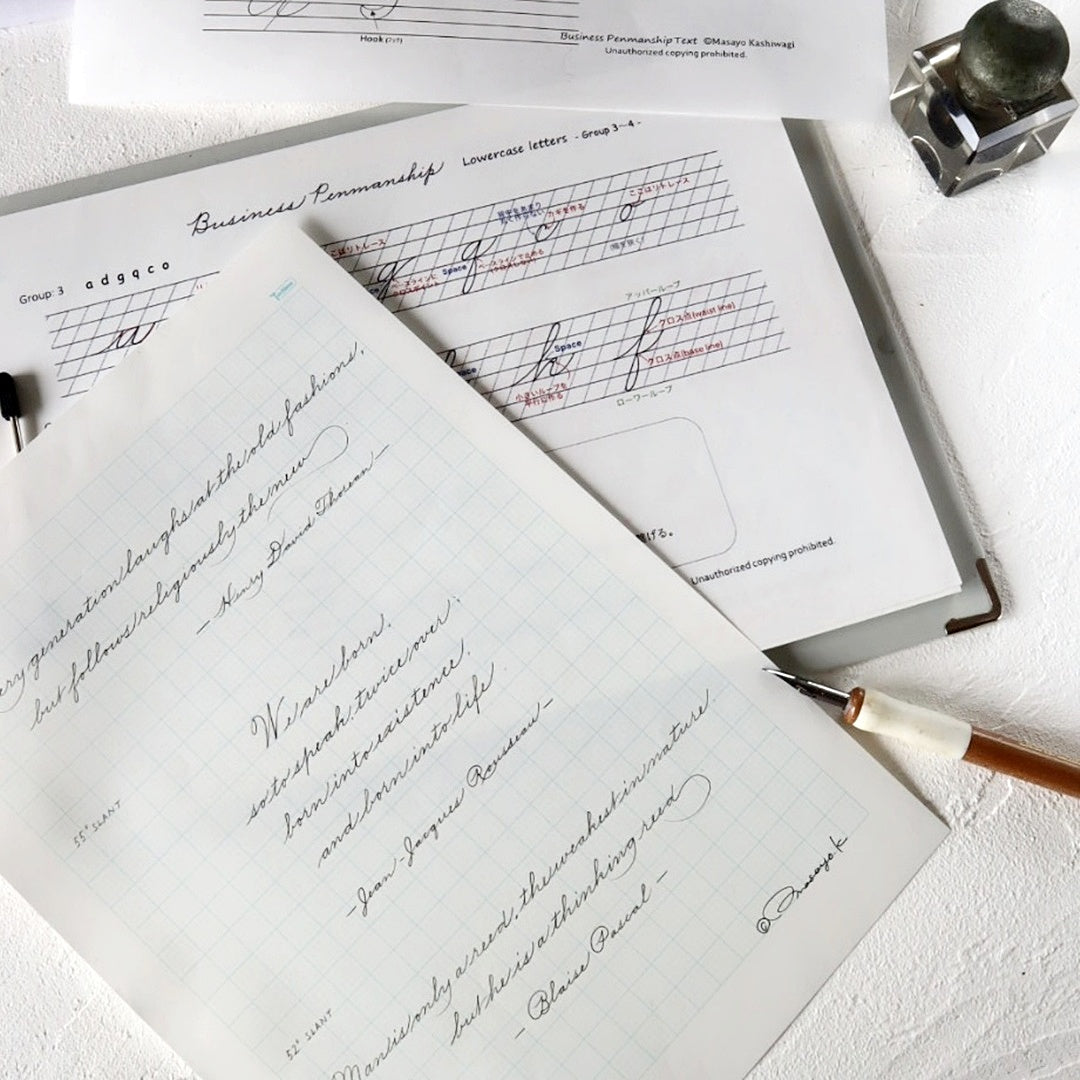 Hook
Business Penmanship Text ©Masayo Kashiwagi
Unauthorized copying prohibited.
Business Penmanship
Lowercase letters - Group 3-4 -
Group: 3 a d g q c o
ここはリトレース
カギを作る
ここはリトレース
a g q c o
Space
アッパーループ
h f
Space
クロス点(waist line)
クロス点(base line)
小さいループを
平行に作る
ローワーループ
Unauthorized copying prohibited.
ery generation laughs at the old fashions,
but follows religiously the new
- Henry David Thoreau -
We are born,
so to speak, twice over;
born into existence,
and born into life
- Jean-Jacques Rousseau -
55° SLANT
Man is only a reed, the weakest in nature,
but he is a thinking reed
- Blaise Pascal -
52° SLANT
© Masayo.K